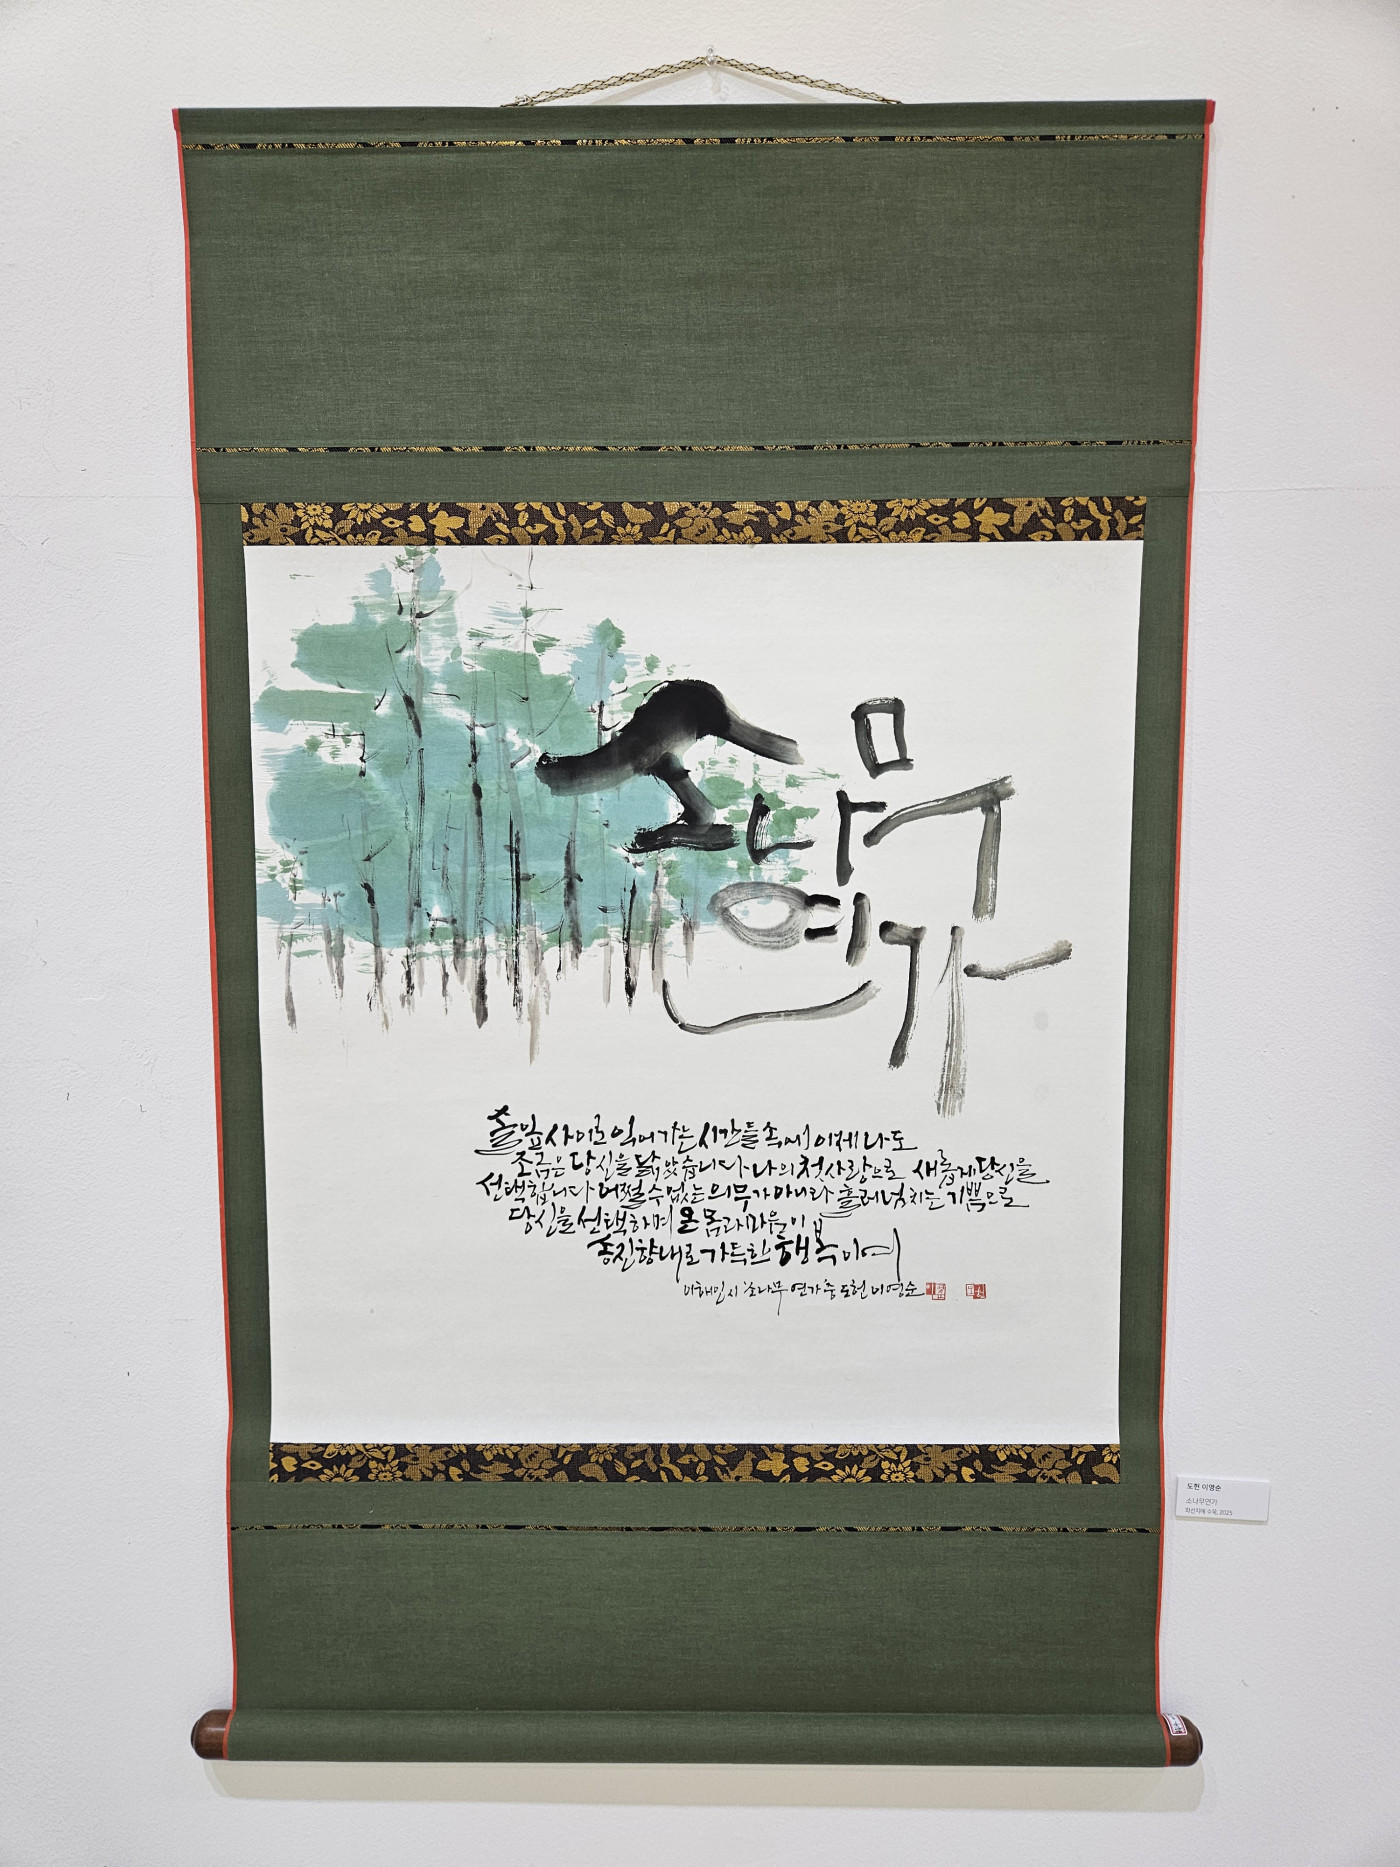 소나무
연가
솔잎 사이로 익어가는 시간들 속에 이제 나도
조금은 당신을 닮았습니다 나의 첫사랑으로 새롭게 당신을
선택합니다 어쩔 수 없는 의무가 아니라 흘러넘치는 기쁨으로
당신을 선택하며 온 몸과 마음이
송진 향내로 가득한 행복이여
이해인 시 '소나무 연가 중 도헌 이영순
도헌 이영순
소나무연가
화선지에 수묵, 2025